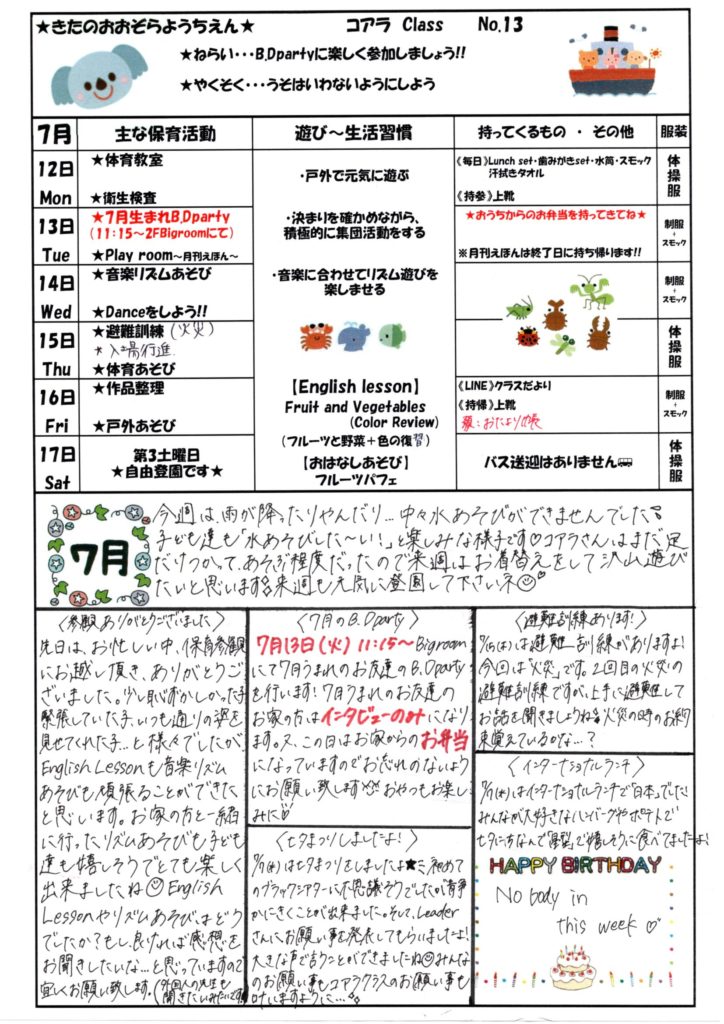 ★きたのおおぞらようちえん★ コアラ Class No.13
★ねらい・・・B,Dpartyに楽しく参加しましょう!!
★やくそく・・・うそはいわないようにしよう
7月 主な保育活動 遊び～生活習慣 持ってくるもの ・ その他 服装
12日 Mon
★体育教室
★衛生検査
・戸外で元気に遊ぶ
《毎日》Lunch set・歯みがきset・水筒・スモック
汗拭きタオル
《持参》上靴
体操服
13日 Tue
★7月生まれB,Dparty
(11:15～2FBigroomにて)
★Play room～月刊えほん～
・決まりを確かめながら、
積極的に集団活動をする
★おうちからのお弁当を持ってきてね★
※月刊えほんは終了日に持ち帰ります!!
制服
+
スモック
14日 Wed
★音楽リズムあそび
★Danceをしよう!!
・音楽に合わせてリズム遊びを
楽しませる
制服
+
スモック
15日 Thu
★避難訓練(火災)
★入場行進
★体育あそび
体操服
16日 Fri
★作品整理
★戸外あそび
【English lesson】
Fruit and Vegetables
(Color Review)
(フルーツと野菜+色の復習)
《LINE》クラスだより
《持帰》上靴
類:おたより帳
制服
+
スモック
17日 Sat
第3土曜日
★自由登園です★
【おはなしあそび】
フルーツパフェ
バス送迎はありません
体操服
7月
今週は雨が降ったりやんだり...中々水あそびができませんでした
子ども達も「水あそびした～い!」と楽しみな様子です♡コアラさんはまだ足
だけつかって、あそぶ程度だったので来週はお着替えをして沢山遊び
たいと思います来週も元気に登園して下さいネ
〈参観ありがとうございました〉
先日は、お忙しい中、保育参観
にお越し頂き、ありがとうご
ざいました。少し恥ずかしかった子
緊張していた子、いつも通りの姿を
見せてくれた子...と様々でしたが、
English Lessonも音楽リズム
あそびも頑張ることができた
と思います。お家の方と一緒
に行ったリズムあそびも子ども
達も嬉しそうでとても楽しく
出来ましたねEnglish
Lessonやリズムあそびはどう
でしたか?もし良ければ感想を
お聞きしたいな...と思っていますので
宜しくお願い致します。(外国人の先生も
聞きたいみたいです)
〈7月のB.Dparty〉
7月13日(火) 11:15～Bigroom
にて7月うまれのお友達のB.Dparty
を行います!7月うまれのお友達の
お家の方はインタビューのみになり
ます。又、この日はお家からのお弁当
になっていますのでお忘れのないよう
にお願い致しますおやつもお楽し
みに♡
〈七夕まつりしましたよ!〉
7/7(水)は七夕まつりをしましたよ★ミ初めて
のブラックシアターに不思議そうでしたが、静
かにきくことが出来ました。そして、Leader
さんにお願い事を発表してもらいましたよ!
大きな声で言うことができましたねみんな
のお願い事もコアラクラスのお願い事も
叶いますように...
〈避難訓練あります!〉
7/15(木)は避難訓練がありますよ!
今回は「火災」です。2回目の火災の
避難訓練ですが、上手に避難して
お話を聞きましょうね火災の時のお約
束覚えているかな...?
〈インターナショナルランチ〉
7/7(水)はインターナショナルランチで日本でした!
みんなが大好きなハンバーグやポテトで
七夕にちなんで「星型」で嬉しそうに食べてましたよ!
HAPPY BIRTHDAY
No body in
this week ♡